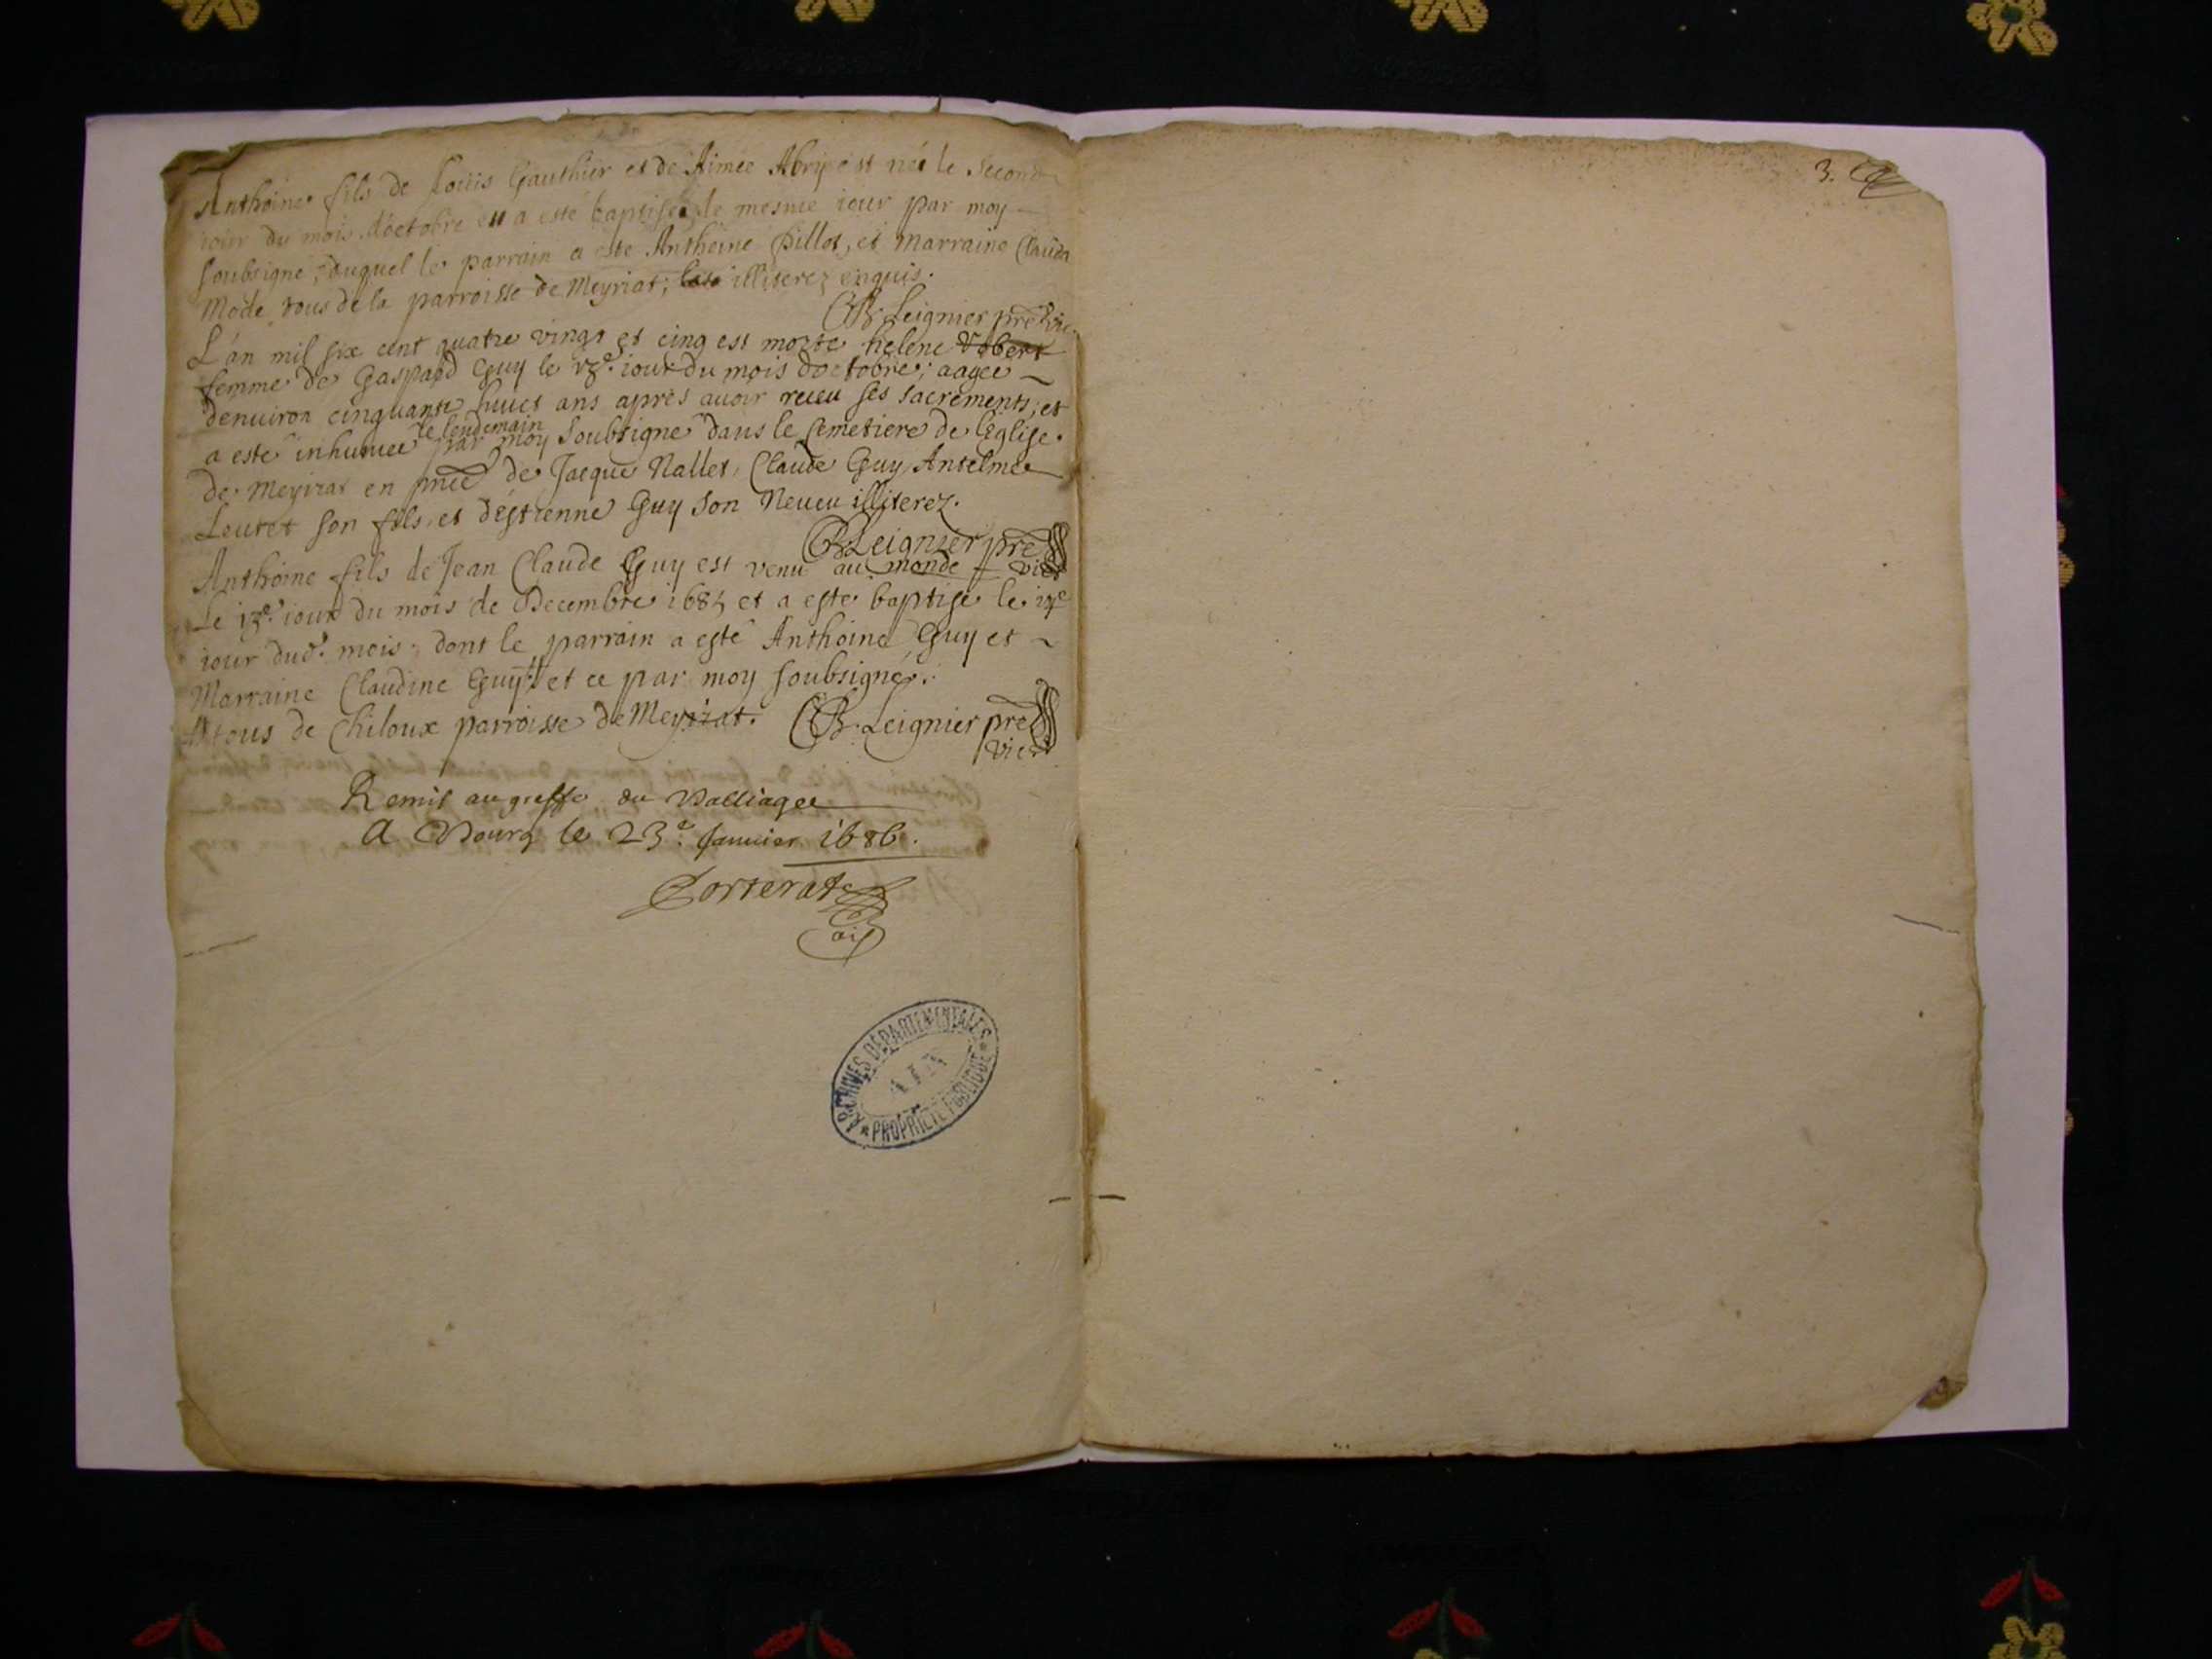 Anthoine fils de Loüis Gauthier et de Aimée Abry est néé le Second
iour du mois d'octobre et a esté baptisé le mesme iour par moy
soubsigné, duquel le parrain a esté Anthoine Pillot, et Marraine Clauda
Mode tous de la parroisse de Meyriat; illiterez enquis.
CB. Leignier pre vic.
L'an mil six cent quatre vingt et cinq est morte helene Vobert
femme de Gaspard Guy le iour du mois d'octobre; aagee
denuiron cinquante huict ans apres auoir receu ses sacrements; et
le lendemain
a esté inhumee par moy Soubsigné dans le Cemetiere de leglise
de Meyriat en pnce de Jacque Nallet, Claude Guy, Anselme
Leutet son fils, et d'estienne Guy son Neueu illiterez.
CB. Leignier pre
vict
Anthoine fils de Jean Claude Guy est venu au monde
Le 13e. iour du mois de Decembre 1685 et a esté baptisé le
iour dud. mois; dont le parrain a esté Anthoine Guy et
Marraine Claudine Guy # et ce par moy soubsigné.
# tous de Chiloux parroisse de Meyriat. CB. Leignier pre
vict
Remis au greffe du Balliage
A Bourg le 23e. Januier 1686.
Corterat
3.
ARCHIVES DÉPARTEMENTALES
AIN
* PROPRIÉTÉ PUBLIQUE *